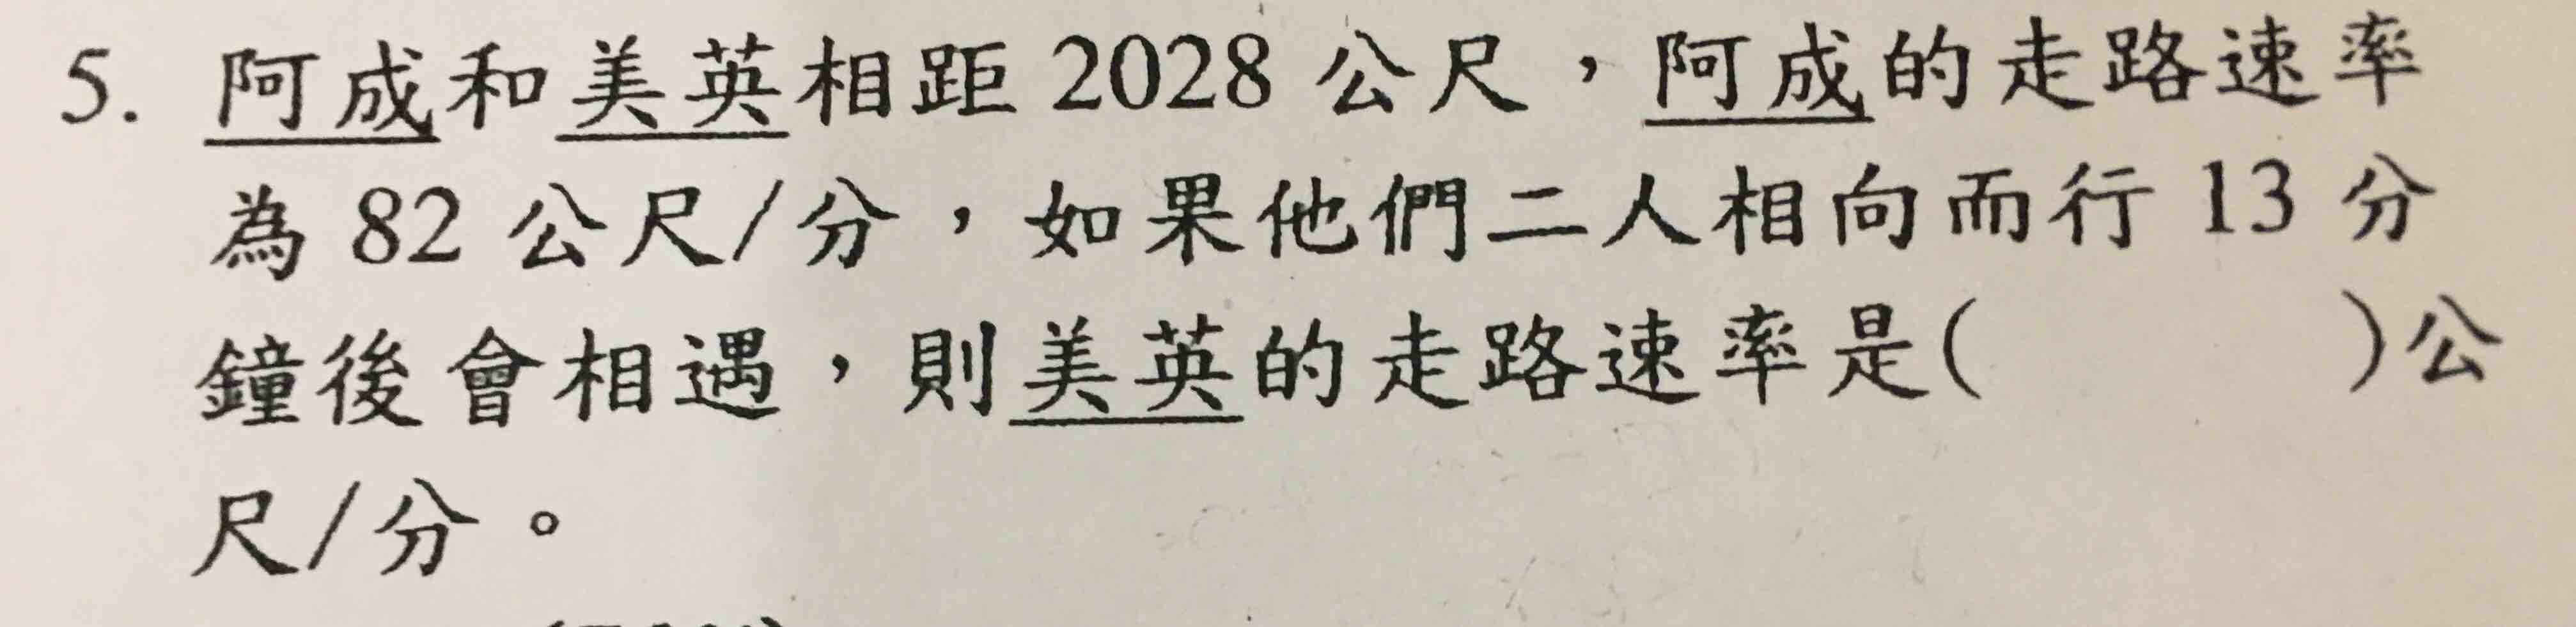 5. 阿成和美英相距 2028 公尺，阿成的走路速率
為 82 公尺/分，如果他們二人相向而行 13 分
鐘後會相遇，則美英的走路速率是(　　　)公
尺/分。